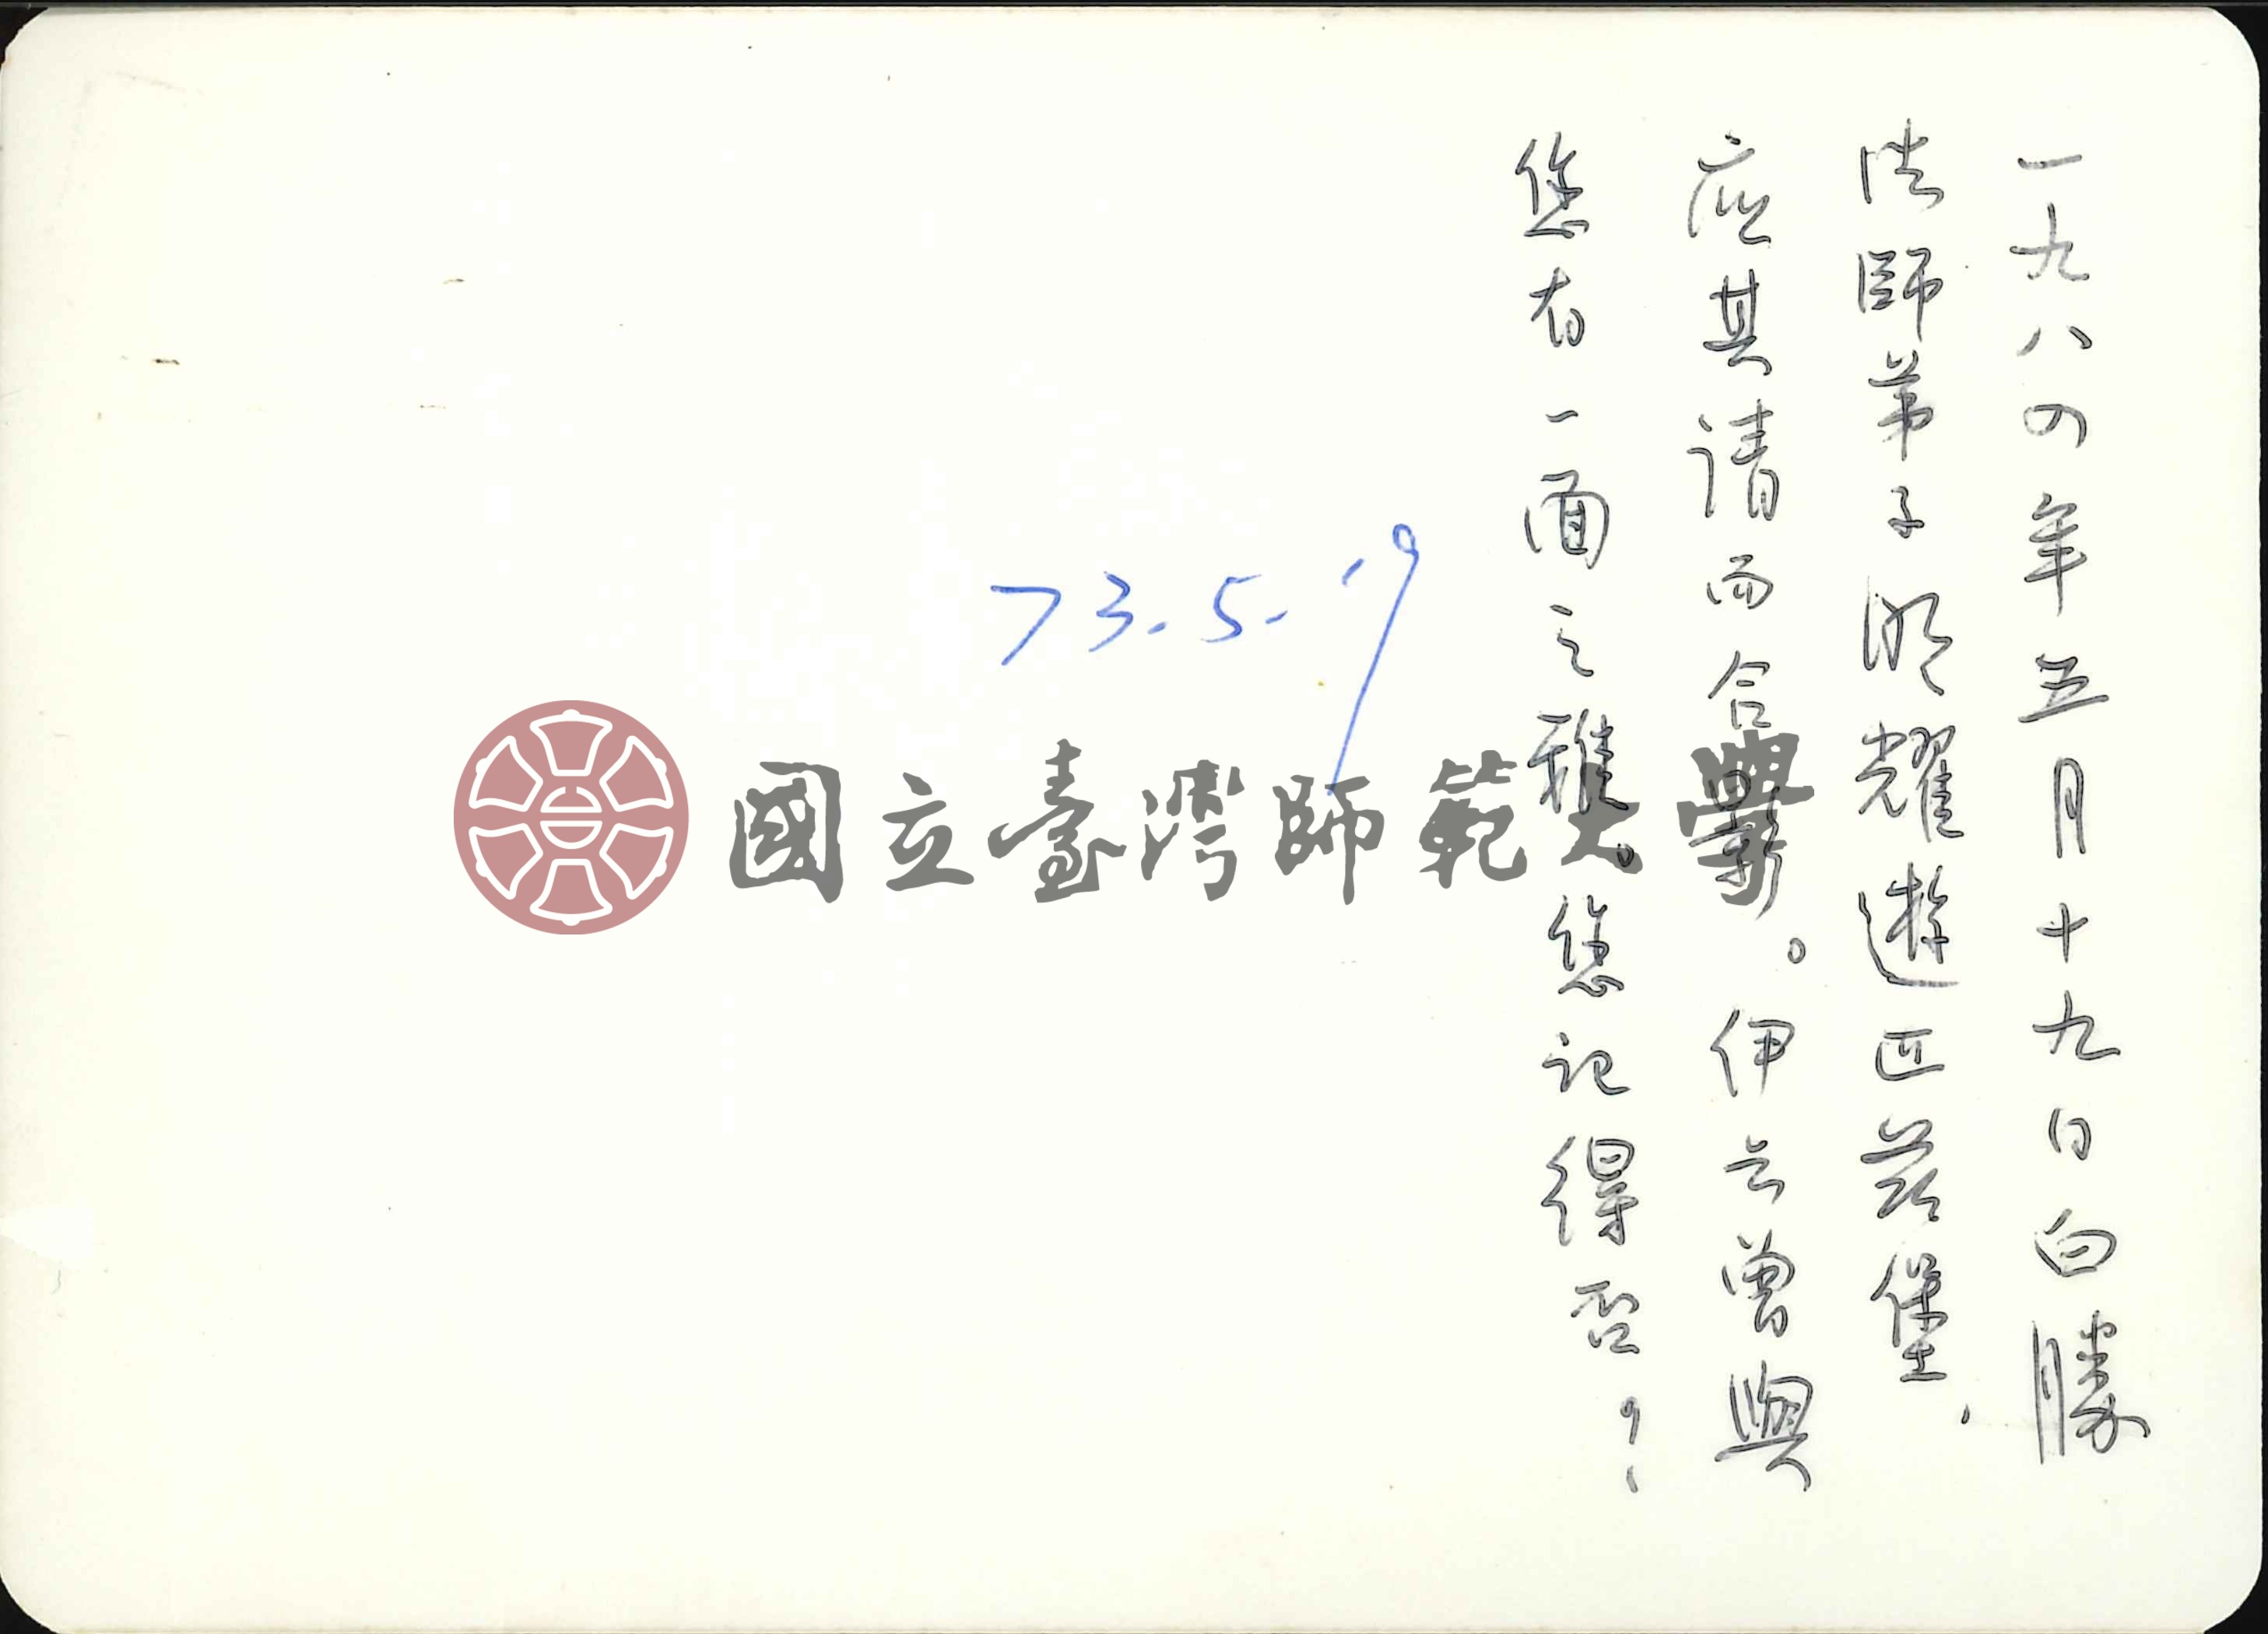 一九八四年五月十九日白勝
法師弟子明耀遊匹茲堡，
應其請而合影。伊云曾與
您有一面之雅。您記得否？
73.5.19
國立臺灣師範大學